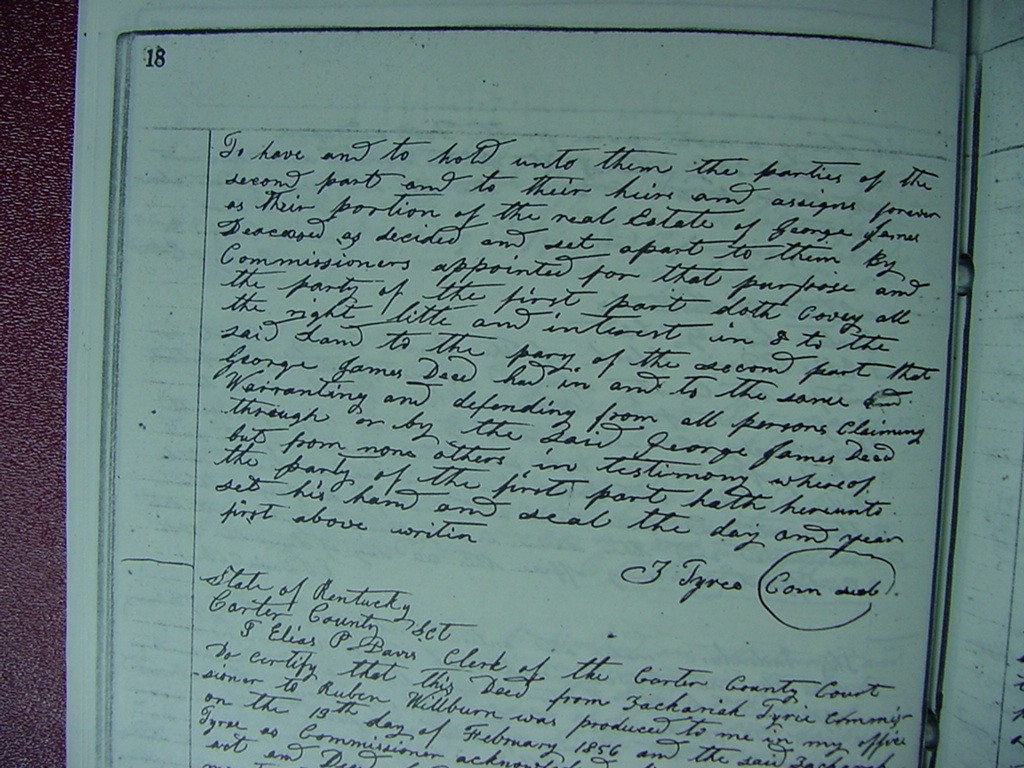 18
To have and to hold unto them the parties of the
second part and to their heirs and assigns forever
as their portion of the real Estate of George James
Deaceased as decided and set apart to them by
Commissioners appointed for that purpose and
the party of the first part doth Covey all
the right title and interest in & to the
said Land to the pary of the second part that
George James Decd had in and to the same and
Warranting and defending from all persons Claiming
through or by the said George James Decd
but from none others, in testimony whereof
the party of the first part hath hereunto
set his hand and seal the day and year
first above writin
Tyree Com seal
State of Kentucky
Carter County Sct
I Elias P. Davis Clerk of the Carter County Court
Do certify that this Deed from Zachariah Tyrie Commis-
-sioner to Ruben Willburn was produced to me in my office
on the 19th day of February 1856 and the said Zachariah
Tyree as Commissioner acknowled
act and Deed